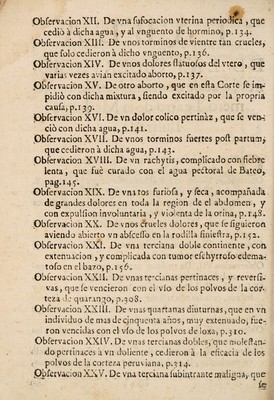 Observacion XII. De vna sufocacion vterina periodica, que
cediò à dicha agua, y al vnguento de hormino, p.134.
Observacion XIII. De vnos torminos de vientre tan crueles,
que solo cedieron à dicho vnguento, p.136.
Observacion XIV. De vnos dolores flatuosos del vtero, que
varias vezes avian excitado aborto, p.137.
Observacion XV. De otro aborto, que en esta Corte se im-
pidiò con dicha mixtura, siendo excitado por la propria
causa, p.139.
Observacion XVI. De vn dolor colico pertinàz, que se ven-
ciò con dicha agua, p.141.
Observacion XVII. De vnos torminos fuertes post partum,
que cedieron à dicha agua, p.143.
Observacion XVIII. De vn rachytis, complicado con fiebre
lenta, que fuè curado con el agua pectoral de Bateo,
pag.145.
Observacion XIX. De vna tos furiosa, y seca, acompañada
de grandes dolores en toda la region de el abdomen, y
con expulsion involuntaria, y violenta de la orina, p.148.
Observacion XX. De vnos crueles dolores, que se siguieron
aviendo abierto vn abscesso en la rodilla siniestra, p.152.
Observacion XXI. De vna terciana doble continente, con
extenuacion, y complicada con tumor eschyrroso edema-
toso en el bazo, p.156.
Observacion XXII. De vnas tercianas pertinaces, y reversi-
vas, que se vencieron con el vso de los polvos de la cor-
teza de quarango, p.308.
Observacion XXIII. De vnas quartanas diuturnas, que en vn
individuo de mas de cinquenta años, muy extenuado, fue-
ron vencidas con el vso de los polvos de loxa, p.310.
Observacion XXIV. De vnas tercianas dobles, que molestan-
do pertinaces à vn doliente, cedieron à la eficacia de los
polvos de la corteza peruviana, p.314.
Observacion XXV. De vna terciana subintrante maligna, que
se